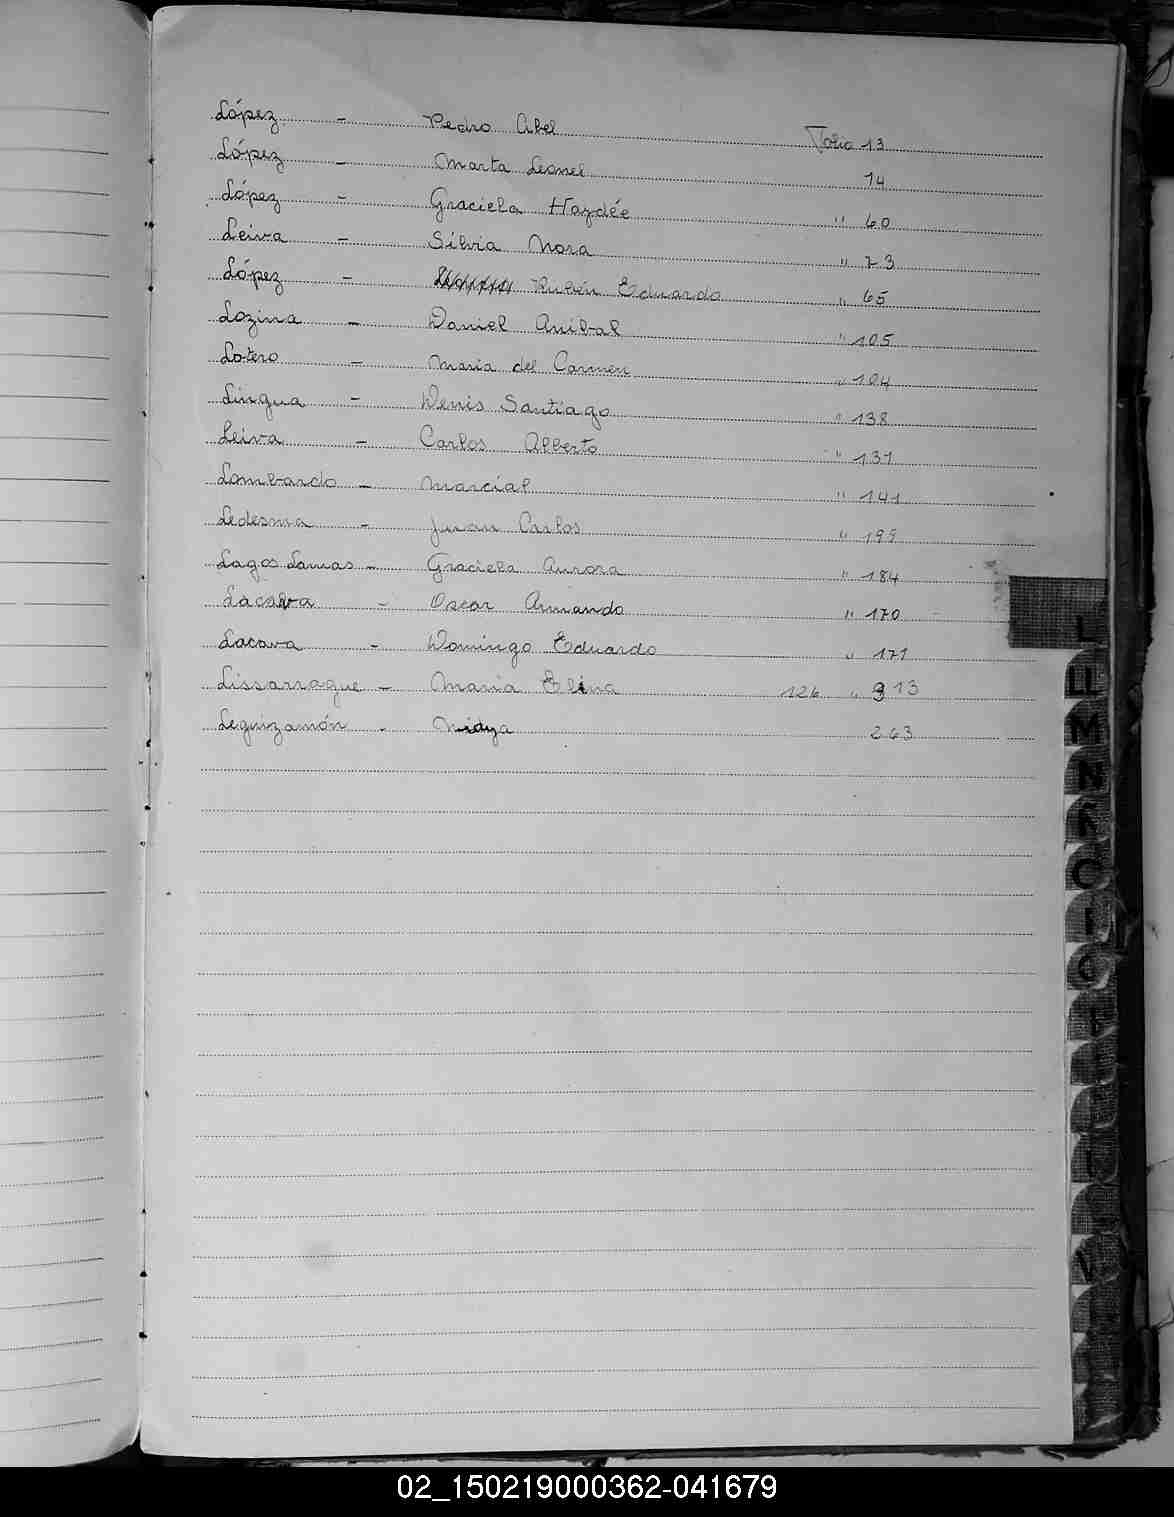 López - Pedro Abel Folio 13
López - Marta Leonel 14
López - Graciela Haydée " 60
Leiva - Silvia Nora " 73
López - Rubén Eduardo " 65
Lozina - Daniel Anibal " 105
Lotero - Maria del Carmen " 104
Lingua - Denis Santiago " 138
Leiva - Carlos Alberto " 131
Lombardo - Marcial " 141
Ledesma - Juan Carlos " 195
Lagos Lamas - Graciela Aurora " 184
Lacava - Oscar Armando " 170
Lacava - Domingo Eduardo " 171
Lissarrague - Maria Elina 126 " 313
Leguizamón - Nidya 263
L
LL
M
N
02_150219000362-041679